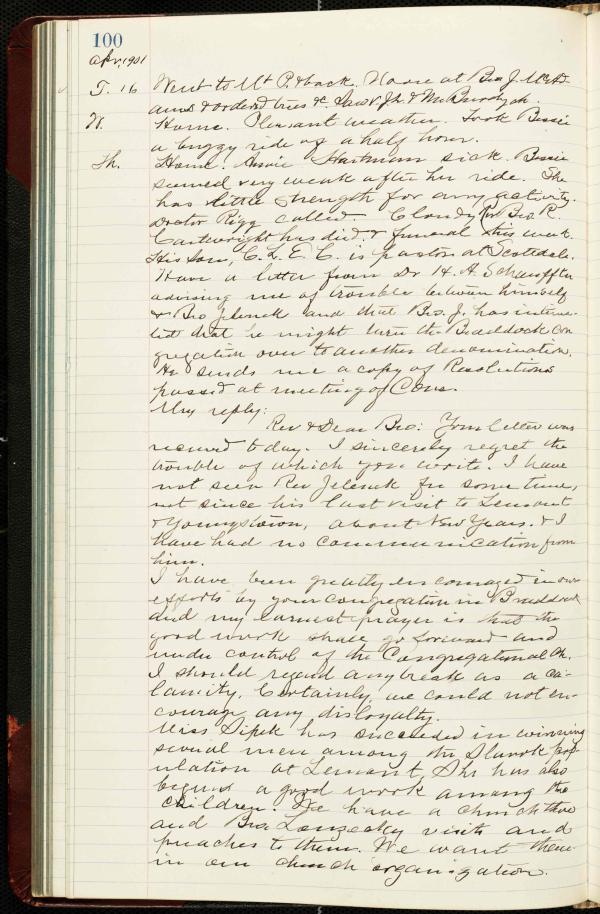 100
Apr, 1901
T. 16 Went to Mt P. & back. Noone at Bro J. McAd-
ams & ordered trees &c. Saw V. Jh. & McBurdy oh.
W. Home. Pleasant weather. Took Bessie
a buggy ride of a half hour.
Th. Home. Annie Hartman sick. Bessie
seemed very weak after her ride. She
has little strength for any activity.
Doctor Rigg called. Cloudy. Rev Bro R.
Cartwright has died & funeral this week.
His son, C. L. E. C. is pastor at Scottdale.
Have a letter from Dr H. A. Schauffler
advising me of trouble between himself
& Bro Jelinek and that Bro. J. has intima-
ted that he might turn the Braddock con
gregation over to another denomination.
He sends me a copy of Resolutions
passed at meeting of Cons.
My reply:
Rev & Dear Bro: Your letter was
received today. I sincerely regret the
trouble of which you write. I have
not seen Rev Jelinek for some time,
not since his last visit to Lemont
& Youngstown, about New Years. & I
have had no communication from
him.
I have been greatly encouraged in our
efforts by your congregation in Braddock
and my earnest prayer is that the
good work shall go forward and
under control of the Congregational Ch.
I should regard any break as a ca-
lamity. Certainly we could not en-
courage any disloyalty.
Miss Sipek has succeeded in winning
several men among the Slavok pop-
ulation at Lemont. She has also
begun a good work among the
children. We have a church there
and Bro Lonzecky visits and
preaches to them. We want them
in our church organization.